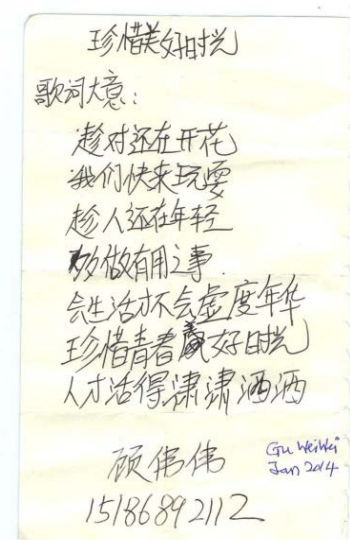 珍惜美好时光
歌词大意：
趁对还在开花
我们快来玩耍
趁人还在年轻
多做有用之事
会生活才不会虚度年华
珍惜青春美好时光
人才活得潇潇洒洒
顾伟伟
Gu WeiWei
Jan 2014
15186892112